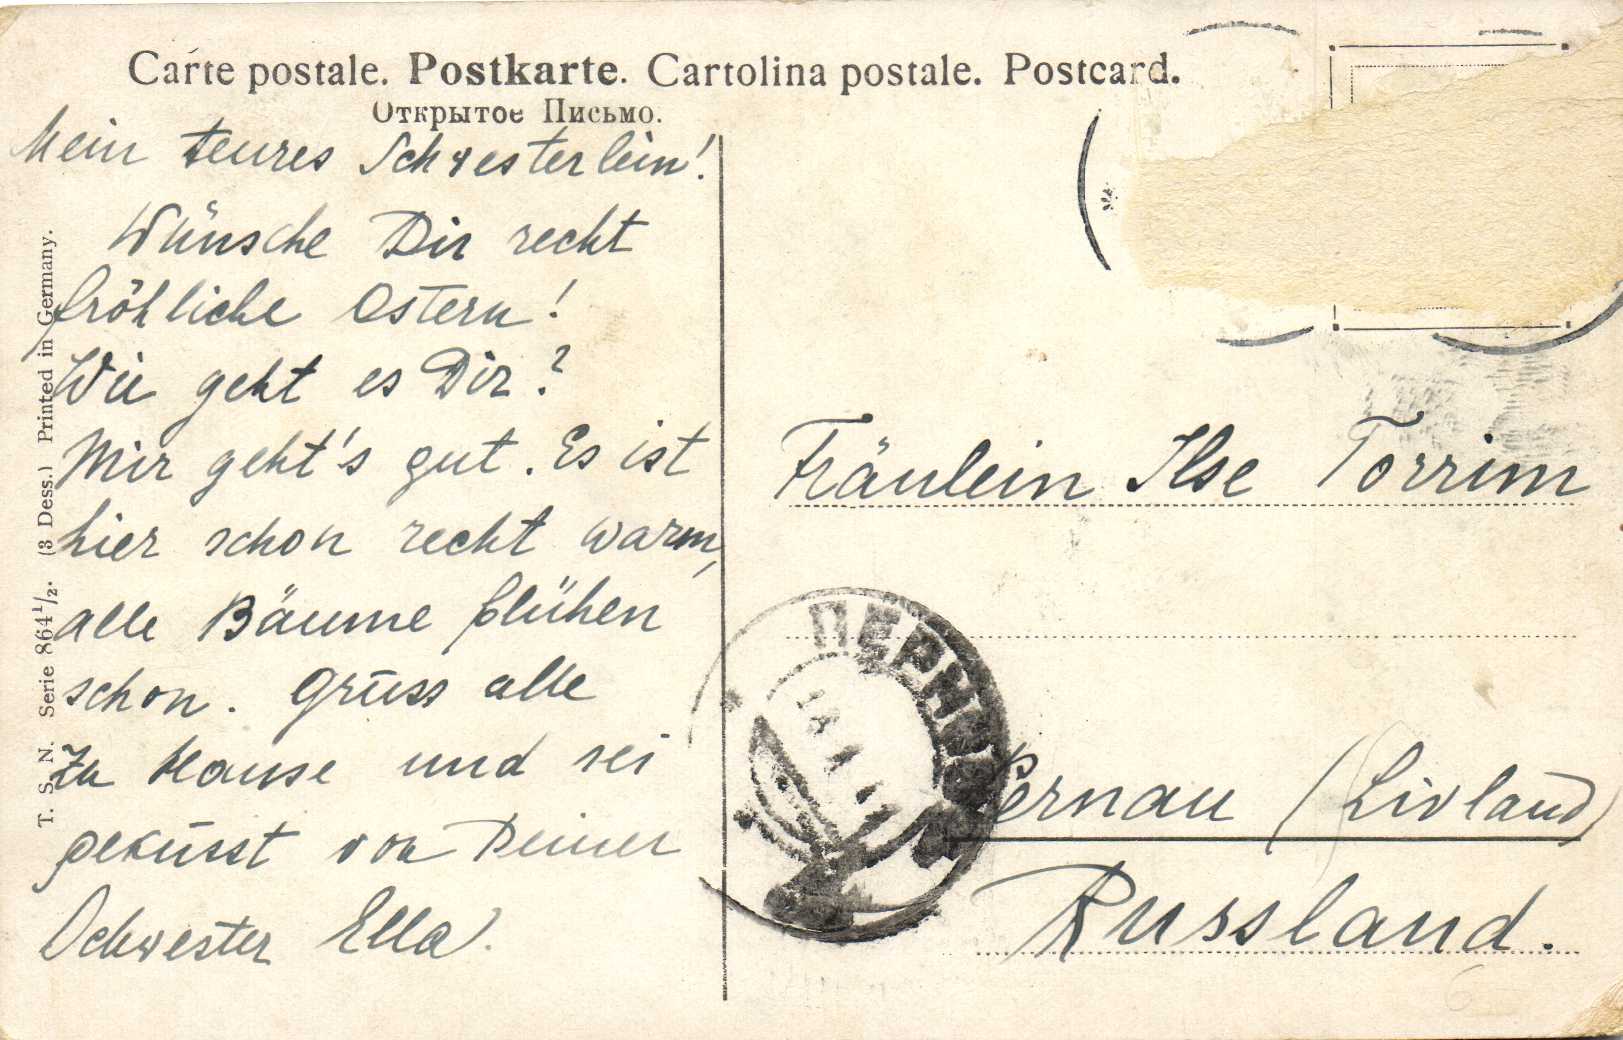 Carte postale. Postkarte. Cartolina postale. Postcard.
Открытое Письмо.
Mein teures Schwesterlein!
Wünsche Dir recht
fröhliche Ostern!
Wie geht es Dir?
Mir geht's gut. Es ist
hier schon recht warm,
alle Bäume blühen
schon. Grüss alle
zu Hause und sei
geküsst von Deiner
Schwester Ella.
T. S. N. Serie 864 1/2. (3 Dess.) Printed in Germany.
Fräulein Ilse Torrim
ПЕРНОВ
Pernau (Livland)
Russland.